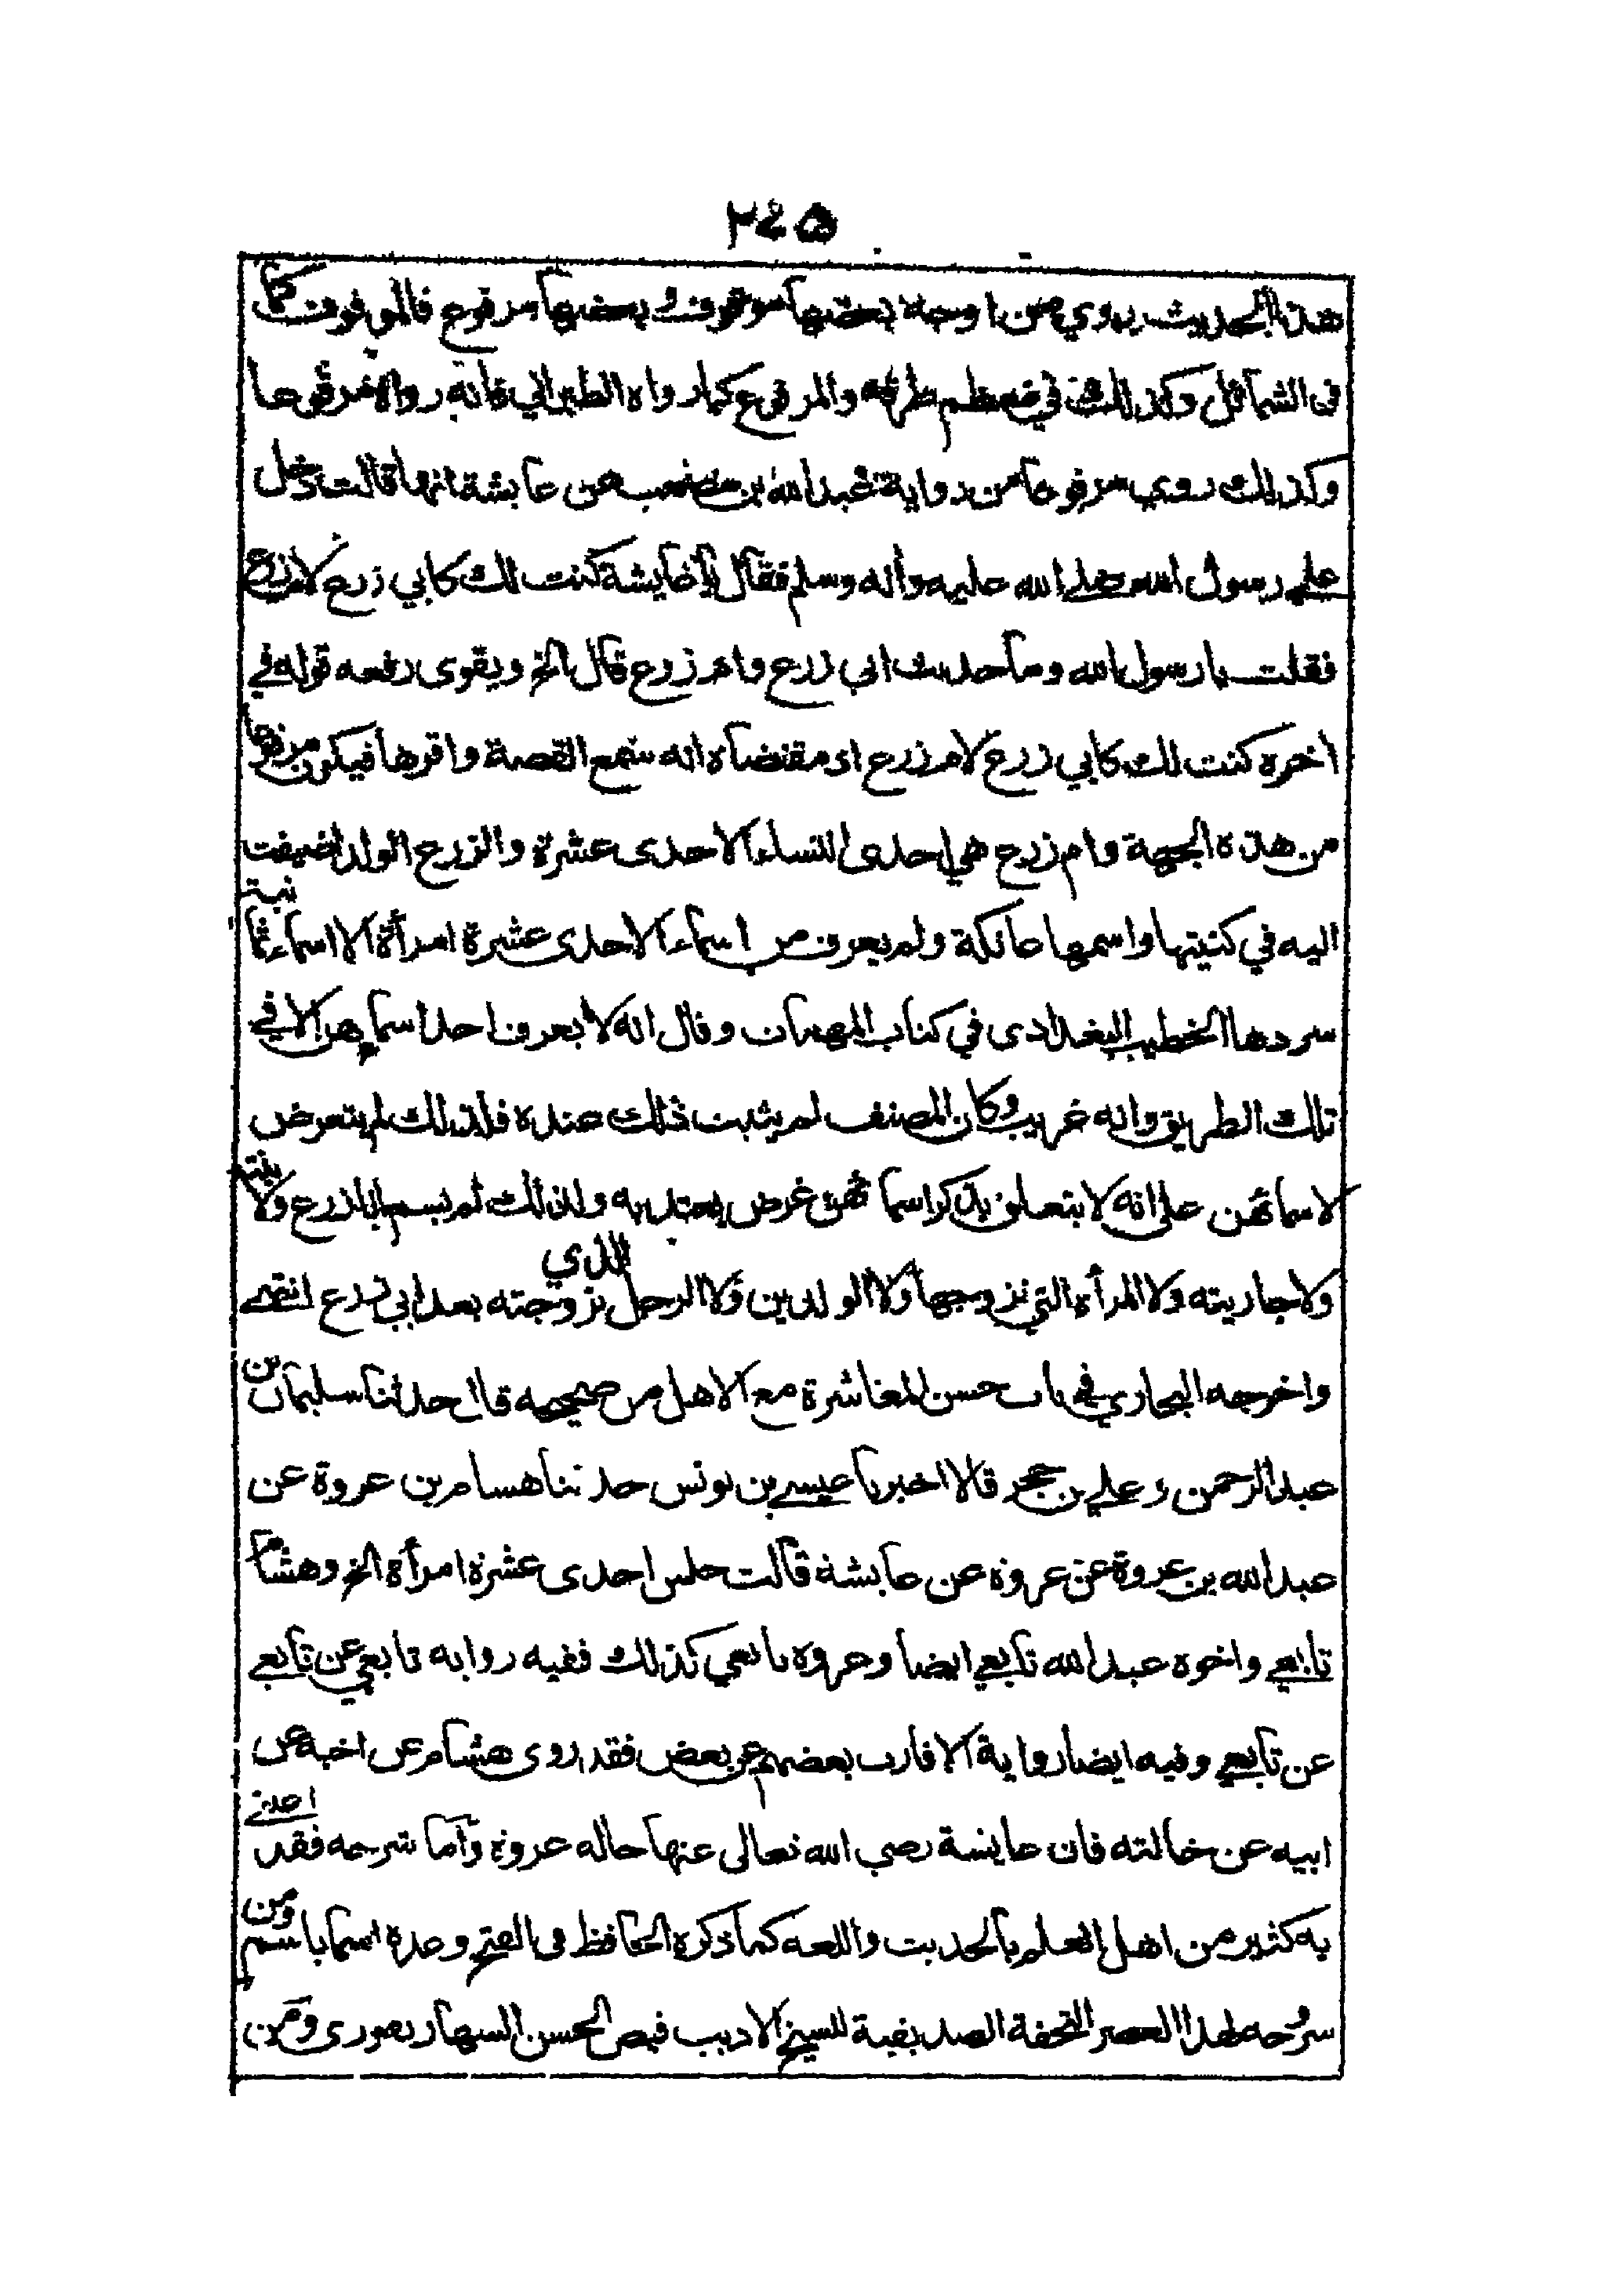 ٢٤٥
هذا الحديث يروي من اوجه بعضها موقوف و بعضها مرفوع فالموقوف كما
فى الشمائل وكذلك في معظم طرقه والمرفوع كما رواه الطبراني فانه رواه مرفوعا
وكذلك روي مرفوعا من رواية عبد الله بن مصعب عن عايشة انها قالت دخل
علي رسول الله صلے الله عليه وآله وسلم فقال يا عايشة كنت لك كابي زرع لام زرع
فقلت يا رسول الله وما حديث ابي زرع وام زرع قال الخ ويقوى رفعه قوله في
اخره كنت لك كابي زرع لام زرع اى مقتضاه انه سمع القصة واقرها فيكون مرفوعا
من هذه الجهة وام زرع هي احدى النساء الاحدى عشرة والزرع الولد اضيفت
اليه في كنيتها واسمها عاتكة ولم يعرف من اسماء الاحدى عشرة امرأة الا اسماء ثمانية
سردها الخطيب البغدادى في كتاب المبهمات وقال انه لا يعرف احد اسماءهن الا في
تلك الطريق وانه غريب وكان المصنف لم يثبت ذلك عنده فلذلك لم يتعرض
لاسمائهن على انه لا يتعلق بذكر اسمائهن غرض يعتد به ولذلك لم يسم ابا زرع ولا بنته
ولا جاريته ولا المرأة التي تزوجها ولا الولدين ولا الرجل الذي تزوجته بعد ابي زرع انتهے
واخرجه البخاري في باب حسن المعاشرة مع الاهل من صحيحه قال حدثنا سليمان بن
عبد الرحمن و علي بن حجر قالا اخبرنا عيسے بن يونس حدثنا هشام بن عروة عن
عبد الله بن عروة عن عروة عن عايشة قالت جلس احدى عشرة امرأة الخ وهشام
تابعے واخوه عبد الله تابعي ايضا وعروه تابعي كذلك ففيه روايه تابعي عن تابعے
عن تابعے وفيه ايضا رواية الاقارب بعضهم عن بعض فقد روى هشام عن اخيه عن
ابيه عن خالته فان عايشة رضي الله تعالى عنها خاله عروة وآما شرحه فقد اعتنے
به كثير من اهل العلم بالحديث واللغه كما ذكره الحافظ فى الفتح وعده اسما باسم ومن
شروحه لهذا العصر التحفة الصديقية للشيخ الاديب فيض الحسن السهارنفورى ومن